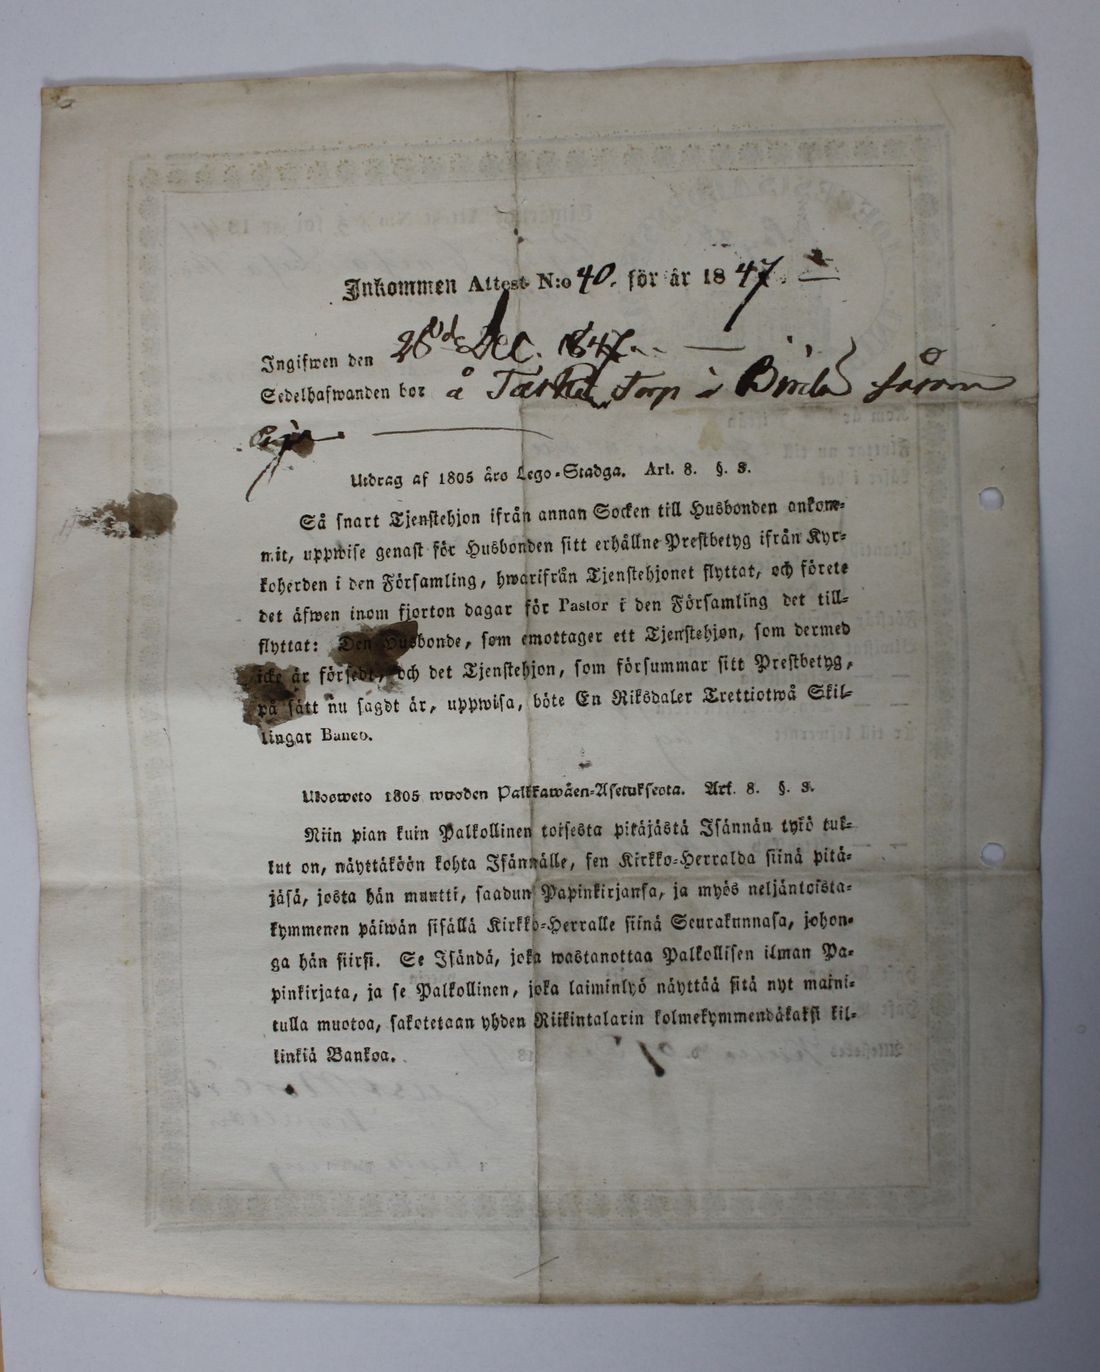 Inkommen Attest N:o 40. för år 1847.
Ingifwen den 28de Dec. 1847.
Sedelhafwanden bor å Torp i
Utdrag af 1805 års Lego-Stadga. Art. 8. §. 8.
Så snart Tjenstehjon ifrån annan Socken till Husbonden ankom-
mit, uppwise genast för Husbonden sitt erhållne Prestbetyg ifrån Kyr-
koherden i den Församling, hwarifrån Tjenstehjonet flyttat, och förete
det äfwen inom fjorton dagar för Pastor i den Församling det till-
flyttat: Den Husbonde, som emottager ett Tjenstehjon, som dermed
icke är försedt, och det Tjenstehjon, som försummar sitt Prestbetyg,
på sätt nu sagdt är, uppwisa, böte En Riksdaler Trettiotwå Skil-
lingar Banco.
Uloosweto 1805 wuoden Palkkawäen-Asetuksesta. Art. 8. §. 8.
Niin pian kuin Palkollinen toisesta pitäjästä Isännän tykö tul-
lut on, näyttäköön kohta Isännälle, sen Kirkko-Herralda siinä pitä-
jäsä, josta hän muutti, saadun Papinkirjansa, ja myös neljäntoista-
kymmenen päiwän sisällä Kirkko-Herralle siinä Seurakunnasa, johon-
ga hän siirsi. Se Isändä, joka wastanottaa Palkollisen ilman Pa-
pinkirjata, ja se Palkollinen, joka laiminlyö näyttää sitä nyt maini-
tulla muotoa, sakotetaan yhden Riikintalarin kolmekymmendäkaksi kil-
linkiä Bankoa.